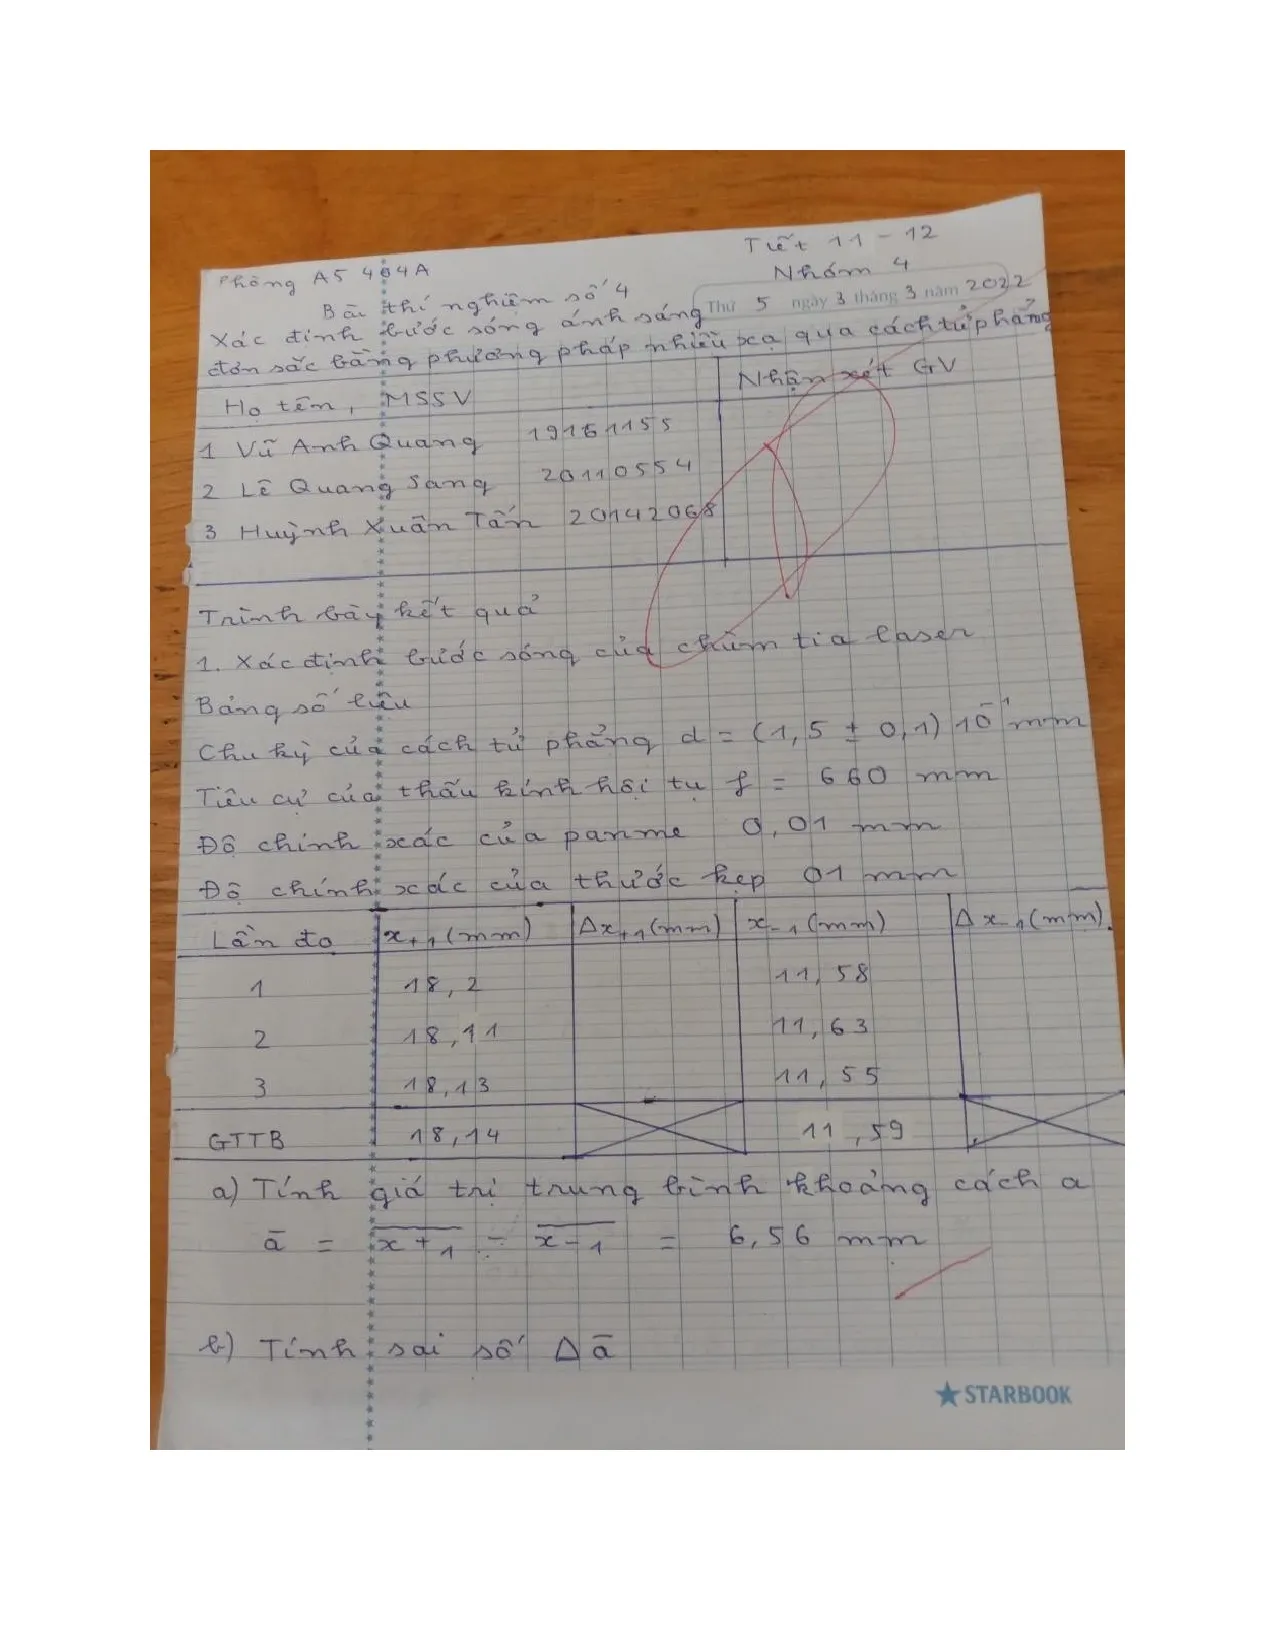 Phòng A5 404A
Tiết 11 - 12
Nhóm 4
Bài thí nghiệm số 4
Thứ 5 ngày 3 tháng 3 năm 2022
Xác định bước sóng ánh sáng
đơn sắc bằng phương pháp nhiễu xạ qua cách tử phẳng
Họ tên, MSSV
Nhận xét GV
1 Vũ Anh Quang 19161155
2 Lê Quang Sang 20110554
3 Huỳnh Xuân Tấn 20142068
Trình bày kết quả
1. Xác định bước sóng của chùm tia laser
Bảng số liệu
Chu kỳ của cách tử phẳng d = (1,5 ± 0,1) 10⁻¹ mm
Tiêu cự của thấu kính hội tụ f = 660 mm
Độ chính xác của panme 0,01 mm
Độ chính xác của thước kẹp 01 mm
Lần đo x₊₁(mm) Δx₊₁(mm) x₋₁(mm) Δx₋₁(mm).
1 18,2 11,58
2 18,11 11,63
3 18,13 11,55
GTTB 18,14 11,59
a) Tính giá trị trung bình khoảng cách a
a̅ = x̅₊₁ - x̅₋₁ = 6,56 mm
b) Tính sai số Δa̅
STARBOOK